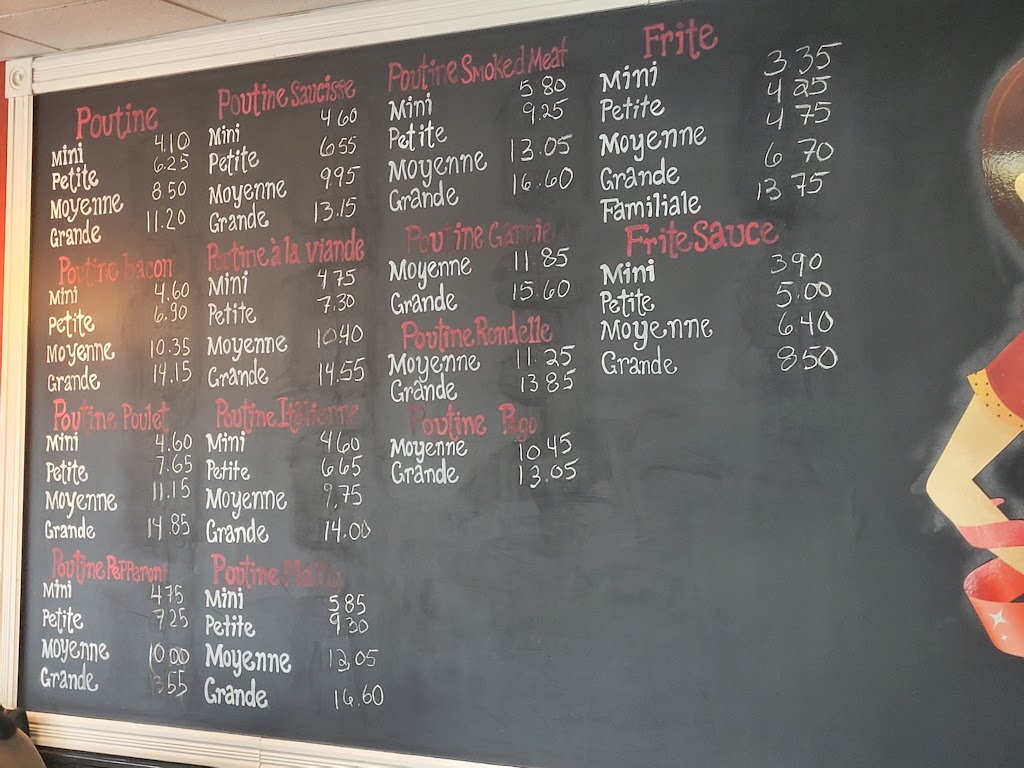 Poutine
Mini 4.10
Petite 6.25
Moyenne 8.50
Grande 11.20
Poutine bacon
Mini 4.60
Petite 6.90
Moyenne 10.35
Grande 14.15
Poutine Poulet
Mini 4.60
Petite 7.65
Moyenne 11.15
Grande 14.85
Poutine Pepperoni
Mini 4.75
Petite 7.25
Moyenne 10.00
Grande 13.55
Poutine Saucisse
Mini 4.60
Petite 6.55
Moyenne 9.95
Grande 13.15
Poutine à la viande
Mini 4.75
Petite 7.30
Moyenne 10.40
Grande 14.55
Poutine Italienne
Mini 4.60
Petite 6.65
Moyenne 9.75
Grande 14.00
Poutine
Mini 5.85
Petite 9.30
Moyenne 13.05
Grande 16.60
Poutine Smoked Meat
Mini 5.80
Petite 9.25
Moyenne 13.05
Grande 16.60
Poutine Garnie
Moyenne 11.85
Grande 15.60
Poutine Rondelle
Moyenne 11.25
Grande 13.85
Poutine Pogo
Moyenne 10.45
Grande 13.05
Frite
Mini 3.35
Petite 4.25
Moyenne 4.75
Grande 6.70
Familiale 13.75
Frite Sauce
Mini 3.90
Petite 5.00
Moyenne 6.40
Grande 8.50